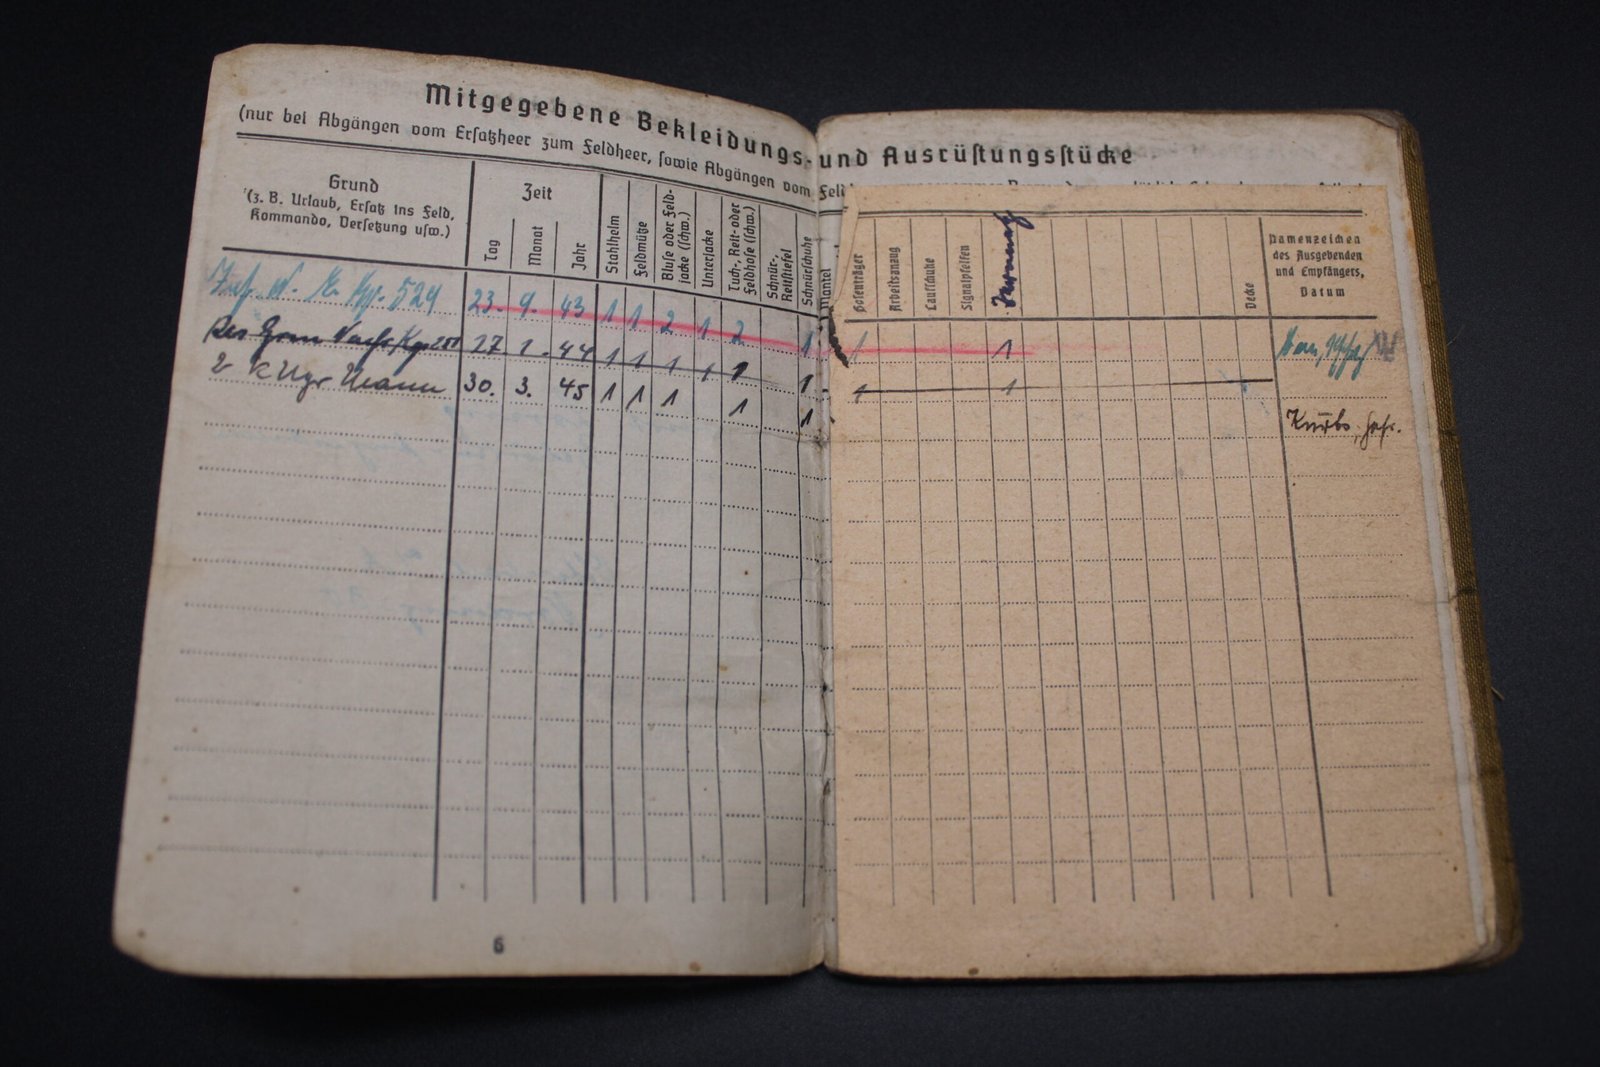 Mitgegebene Bekleidungs- und Ausrüstungsstücke
(nur bei Abgängen vom Ersatzheer zum Feldheer, sowie Abgängen vom
Grund
(z. B. Urlaub, Ersatz ins Feld,
Kommando, Versetzung usw.)
Zeit
Tag
Monat
Jahr
Stahlhelm
Feldmütze
Bluse oder Feld-
jacke (schw.)
Unterjacke
Tuch-, Reit- oder
Feldhose (schw.)
Schnür-,
Reitstiefel
Schnürschuhe
Mantel
Hosenträger
Arbeitsanzug
Laufschuhe
Signalpfeifen
Decke
Namenzeichen
des Ausgebenden
und Empfängers,
Datum
529 23. 9. 43 1 1 2 1 2 1 1 1
27. 1. 44 1 1 1 1 1 1 1 1
30. 3. 45 1 1 1 1 1
6